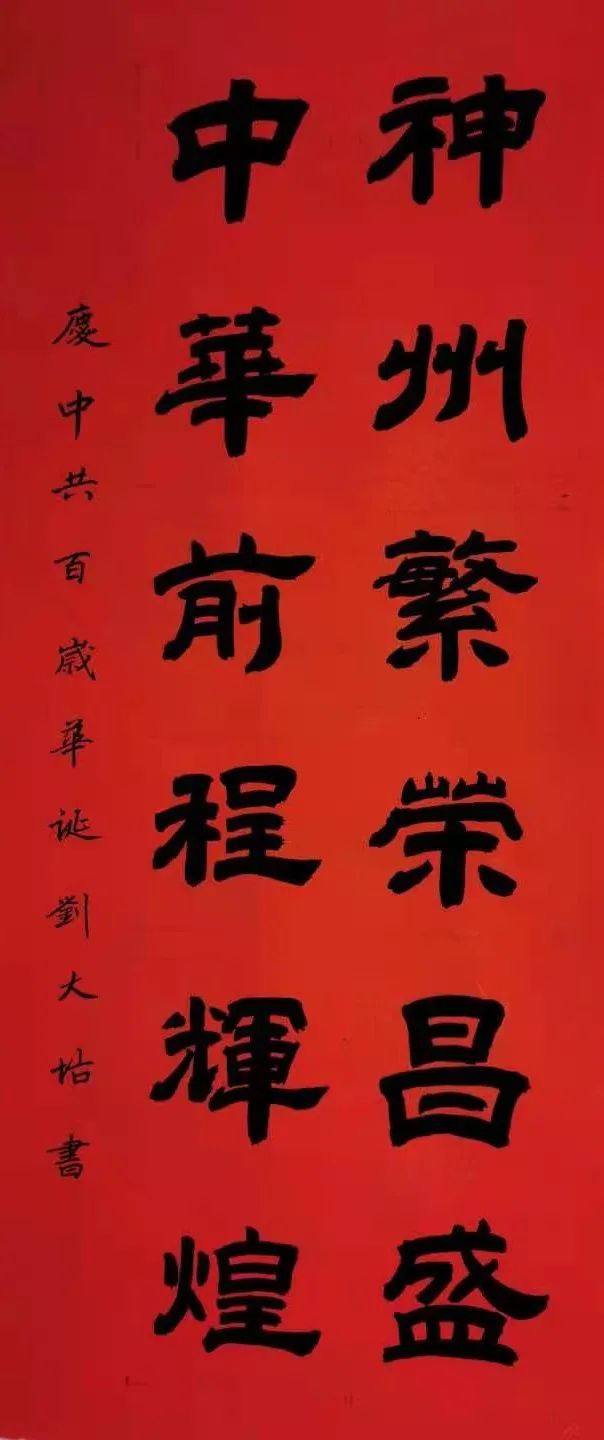 神州繁荣昌盛
中華前程輝煌
慶中共百歲華誕劉大坫書